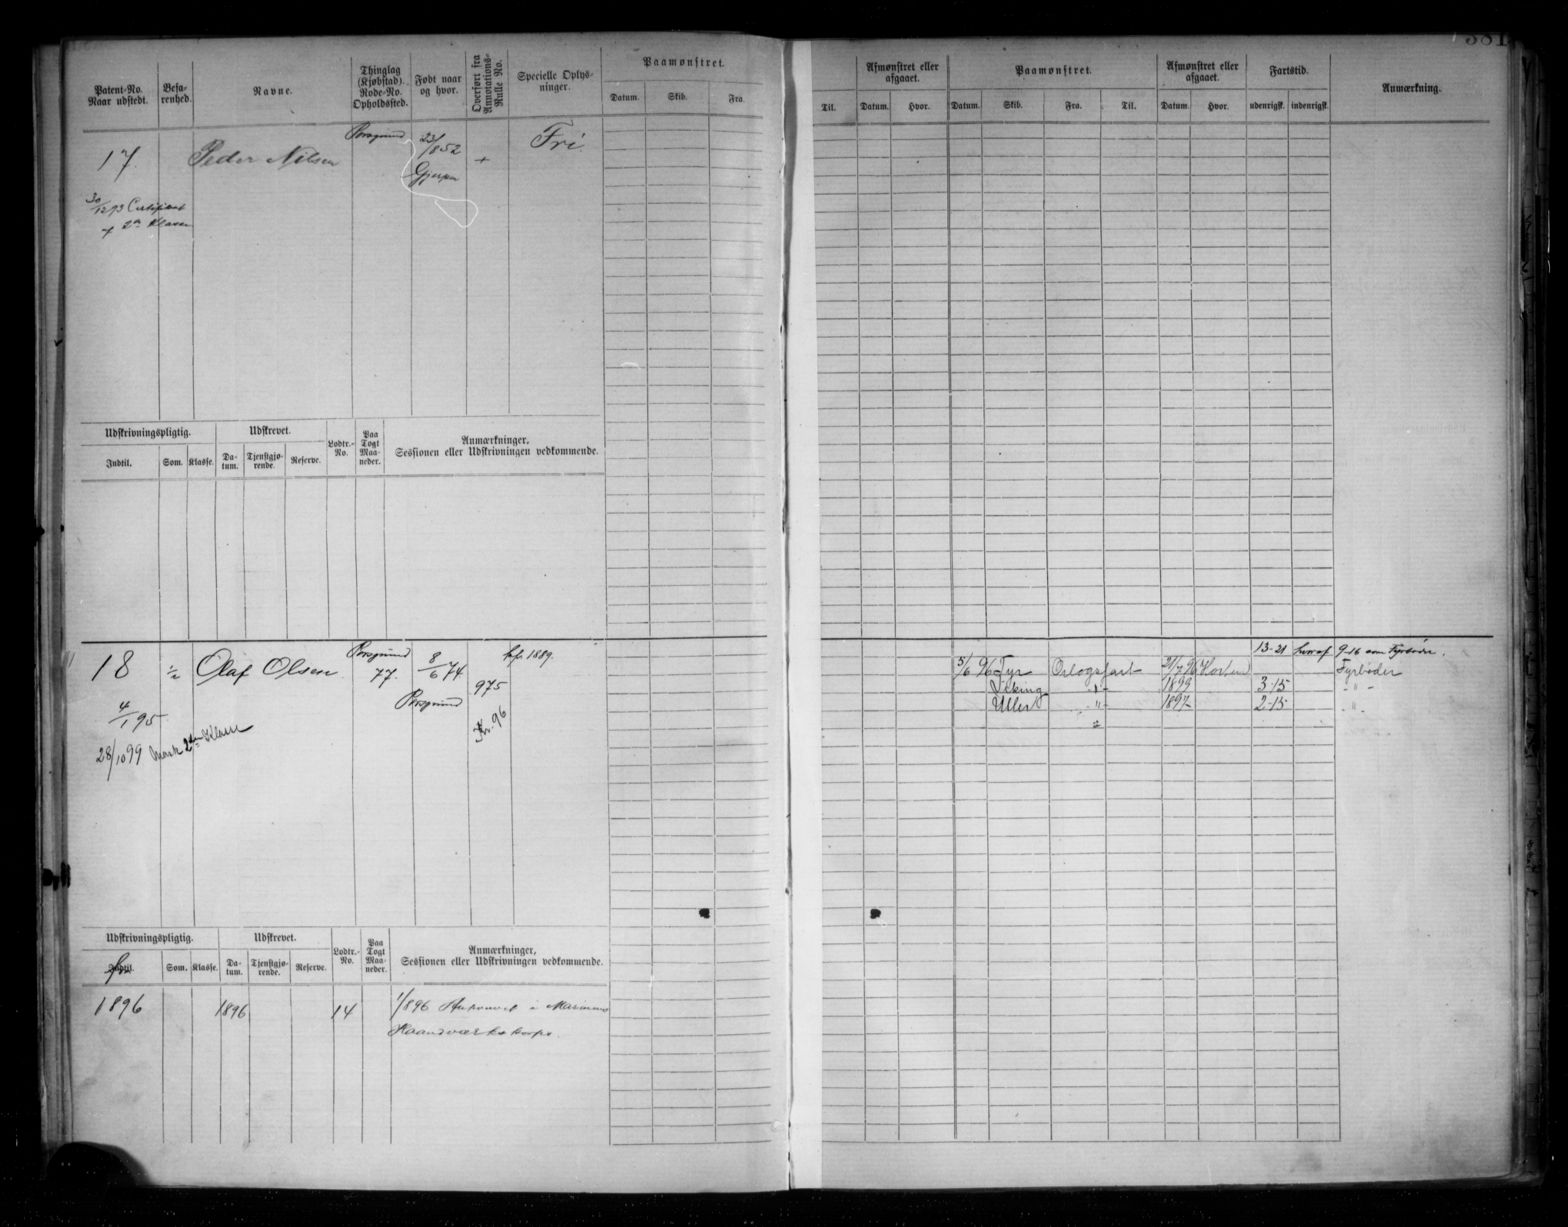 381
Patent-No. Naar udstedt.
Befa-renhed.
Navne.
Thinglag (Kjøbstad) Rode-No. Opholdssted.
Født naar og hvor.
Overført fra Annotations-Rulle No.
Specielle Oplys-ninger.
Paamønstret.
Datum. Skib. Fra
Til.
Afmønstret eller afgaaet.
Datum. Hvor.
Paamønstret.
Datum. Skib. Fra. Til.
Afmønstret eller afgaaet.
Datum. Hvor.
Fartstid.
udenrigsk. indenrigsk.
Anmærkning.
17 Peder Nilsen Porsgrund 23/ 852 Gjerpen + Fri
30/12 93 Certifikat
2den Klasse
Udskrivningspligtig. Udskrevet. Lodtr.-No. Paa Togt Maa-neder. Anmærkninger, Sessionen eller Udskrivningen vedkommende.
Indtil. Som. Klasse. Da-tum. Tjenstgjø-rende. Reserve.
18 ½ Olaf Olsen Porsgrund 77 8/6 74 Porsgrund 975 kf. 1889.
4/1 95
28/10 99 Mask 2den Klasse
Kr. 96
13-21 hvoraf 9-16 som Fyrbøder.
5/6 96 Tyr Orlogsfart 21/7 96 Horten Fyrbøder
Viking " 1899 3-15 "
Uller " 1897 2-15 "
"
Udskrivningspligtig. Udskrevet. Lodtr.-No. Paa Togt Maa-neder. Anmærkninger, Sessionen eller Udskrivningen vedkommende.
fra Som. Klasse. Da-tum. Tjenstgjø-rende. Reserve.
1896 1896 14 1/896 i Marinens
Haandværkskorps.